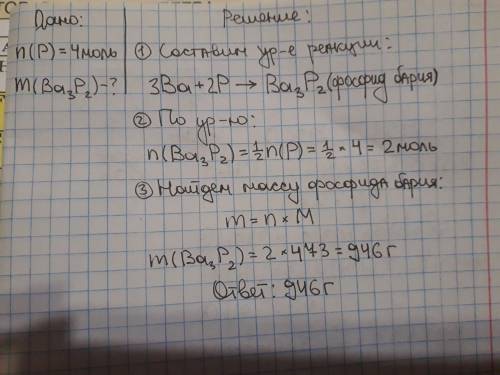 Дано:
n(P)=4моль
m(Ba₃P₂)-?
Решение:
① Составим ур-е реакции:
3Ba+2P → Ba₃P₂(фосфид бария)
② По ур-ю:
n(Ba₃P₂)=½n(P)=½*4=2моль
③ Найдем массу фосфида бария:
m=n×M
m(Ba₃P₂)=2*473=946г
Ответ: 946г